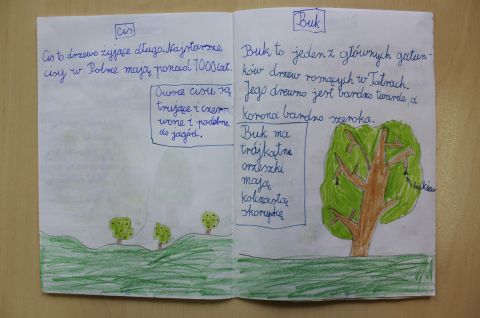 Cis
Cis to drzewo żyjące długo. Najstarsze
cisy w Polsce mają ponad 1000 lat.
Owoce cisu są
trujące i czer-
wone i podobne
do jagód.
Buk
Buk to jeden z głównych gatun-
ków drzew rosnących w Tatrach.
Jego drewno jest bardzo twarde, a
korona bardzo szeroka.
Buk ma
trójkątne
orzeszki
mają
kolczastą
skorupkę